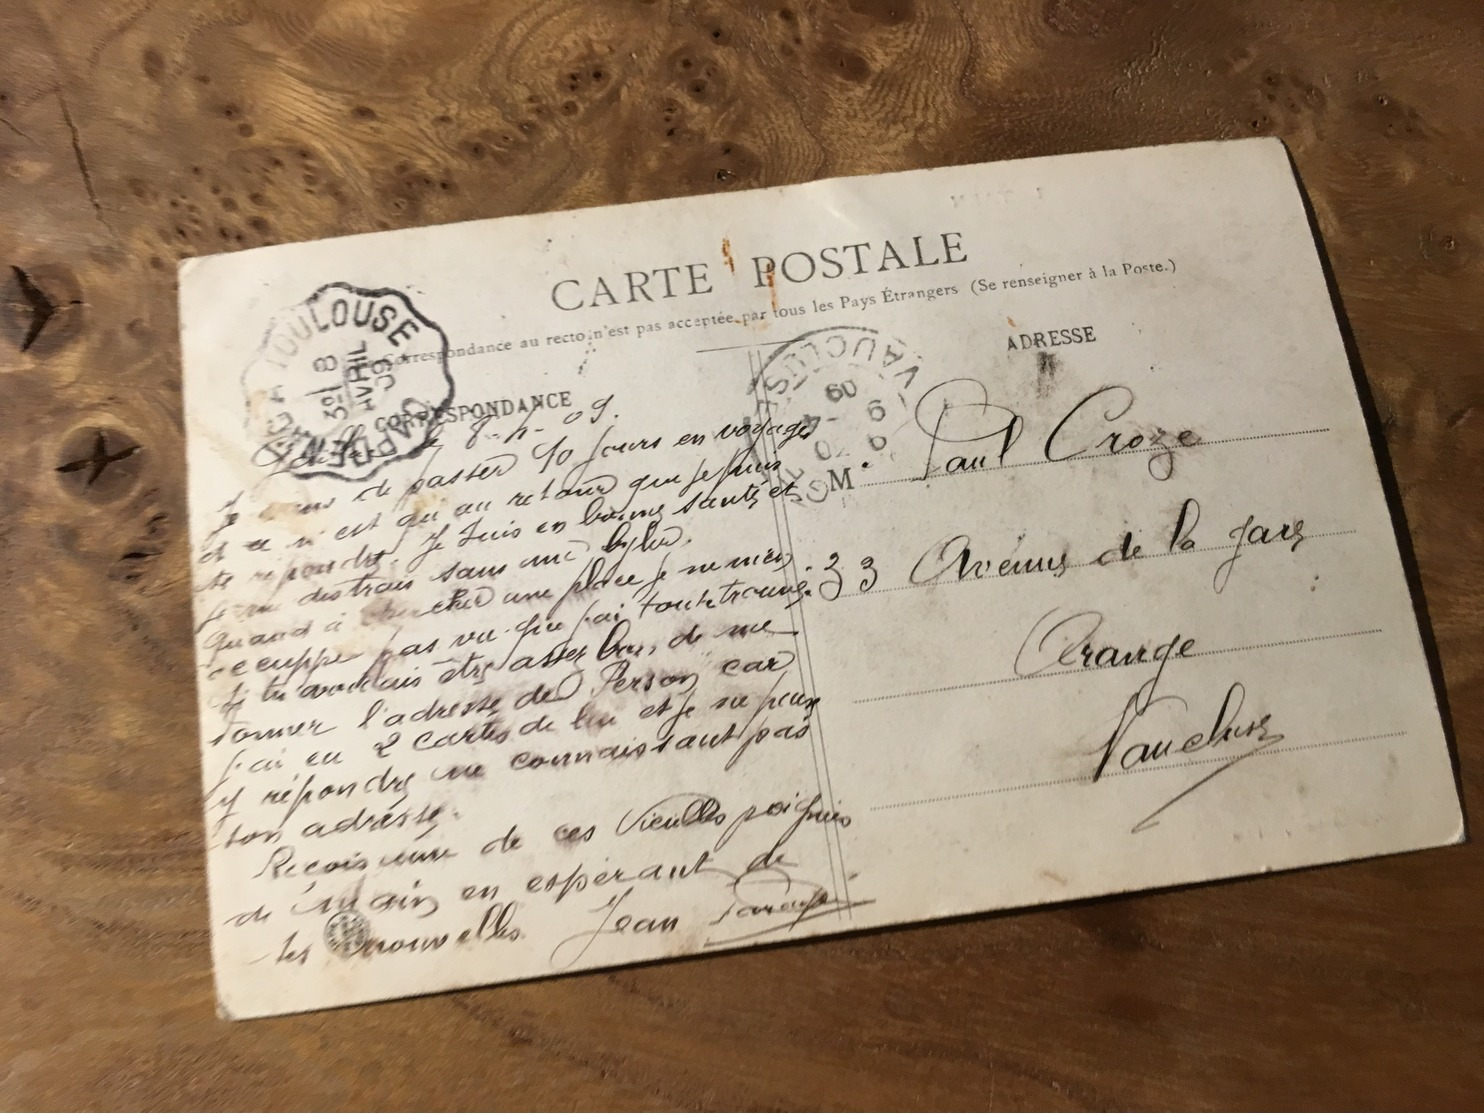 CARTE POSTALE
Correspondance au recto n'est pas acceptée par tous les Pays Étrangers (Se renseigner à la Poste.)
CORRESPONDANCE
ADRESSE
TOULOUSE
8
AVRIL
09
VAUCLUSE
9 - 4
09
le 8-4-09.
Je de passer 10 jours en voyage
et ce n'est qu'au retour que je puis
te répondre. Je suis en bonne santé et
sans une
Quand à chercher une place je ne m'en
occuppe pas vu que j'ai toute trouvé.
Si tu voulais être assez bon, de me
donner l'adresse de Person car
j'ai eu 2 cartes de lui et je ne peux
y répondre ne connaissant pas
son adresse.
Recois une de ces Vieilles poignées
de main en espérant de
tes nouvelles. Jean
M. Paul Croze
33 Avenue de la Gare
Orange
Vaucluse